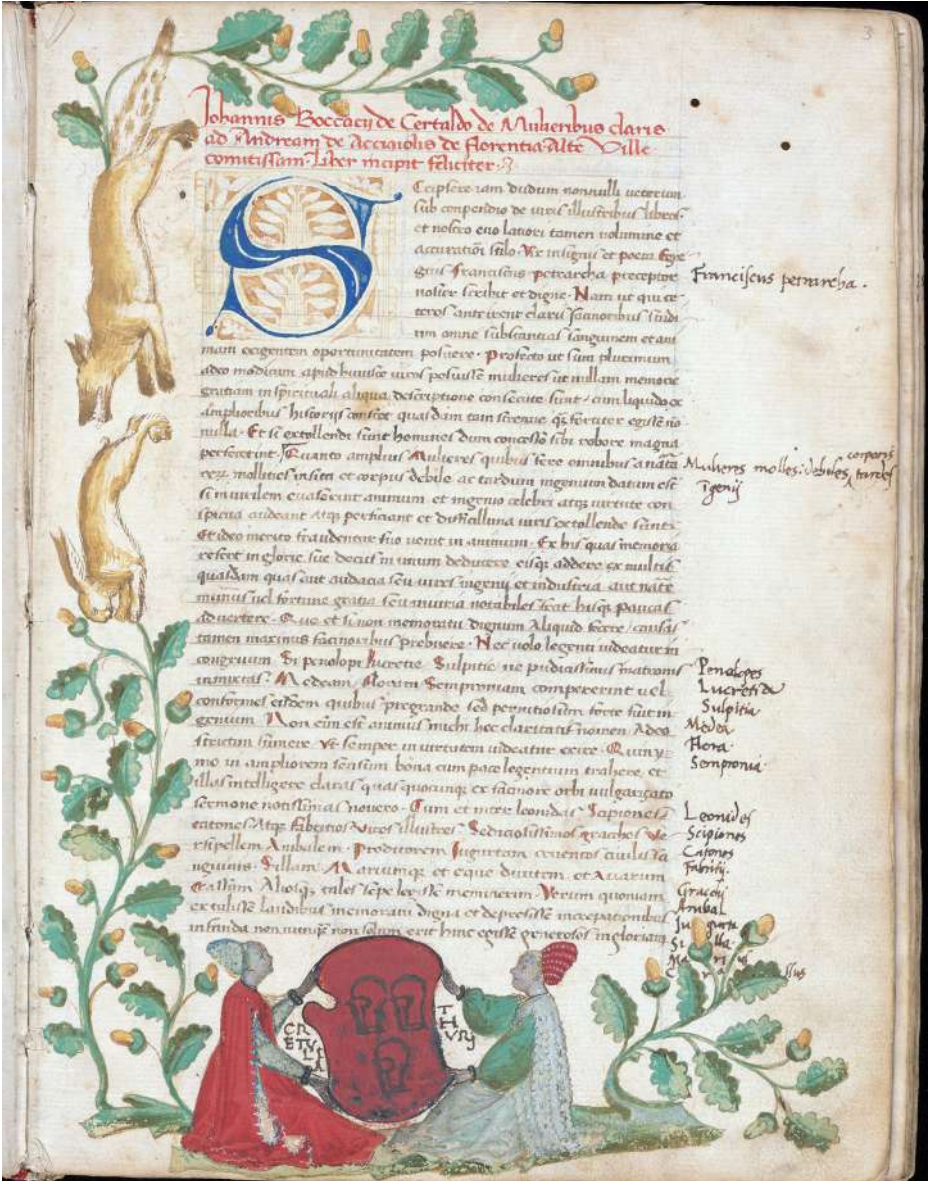 3
Johannis Boccacij de Certaldo de Mulieribus claris
ad Andream de Acciaiolis de florentia Alte Ville
comitissam Liber incipit feliciter
SCripsere iam dudum nonnulli ueterum
sub conpendio de uiris illustribus libros
et nostro euo latiori tamen uolumine et
accuratiori stilo Vir insignis et poeta Egre
gius Franciscus petrarcha preceptor
noster scribit et digne Nam ut qui ce
teros anteirent claris facinoribus studi
um omne substantias sanguinem et ani
mam exigentem oportunitatem posuere Profecto ut sum plurimum
adeo modicum apud uiros posuisse mulieres ut nullam memorie
gratiam in spirituali aliqua descriptione consecute sint cum liquido ex
amplioribus historijs constet quasdam tam strenue fortiter egisse no
nulla Et si extollendi sunt homines dum concesso sibi robore magna
perfecerint Quanto amplius Mulieres quibus fere omnibus a nata
mollities insita et corpus debile ac tardum ingenium datum est
si in uirilem euaserint animum et ingenio celebri atque uirtute con
spicua audeant atque perficiant et difficilima uiris extollende sunt
Et ideo merito fraudentur suo uenit in animum Ex his quas memoria
refert in glorie sue decus in unum deducere eisque addere ex multis
quasdam quas aut audacia seu uires ingenij et industria aut nature
munus uel fortune gratia seu iniuria notabiles fecit hisque paucas
aduertere Que et si non memoratu dignum Aliquid fecere causas
tamen maximis facinoribus prebuere Nec uolo legenti uideatur in
congruum Si penolopi Lucretie Sulpitie ne pudicissimis matronis
inmixtas Medeam Floram Semproniam compererint uel
conformes eisdem quibus pregrande sed pernitiosum forte fuit in
genium Non enim est animus michi hoc claritatis nomen Adeo
strictim sumere Vt semper in uirtutem uideatur exire Quiny
mo in ampliorem sensum bona cum pace legentium trahere et
illas intelligere claras quas quocunque ex facinore orbi uulgarizato
sermone notissimas nouero Cum et inter leonidas Scipiones
catones Atque fabritios Viros illustres Sediciosissimos grachos Ve
rsipellem Anibalem Proditorem Jugurtam cruentos ciuilis sa
nguinis Sillam Mariumque et eque diuitem et Auarum
Crassum Aliosque tales sepe legisse meminerim Verum quoniam
extulisse laudibus memoratu digna et depressisse increpationibus
infanda non nunque non solum erit hinc egisse generosos in gloriam
Franciscus petrarcha
Mulieres molles debiles corporis tardes
igenij
Penolopes
Lucretide
Sulpitia
Medea
Flora
Sempronia
Leonides
Scipiones
Catones
Fabritij
Gracci
Anibal
Jugurta
Silla
Marius
Crassus
CR
ETVL
THVRJ